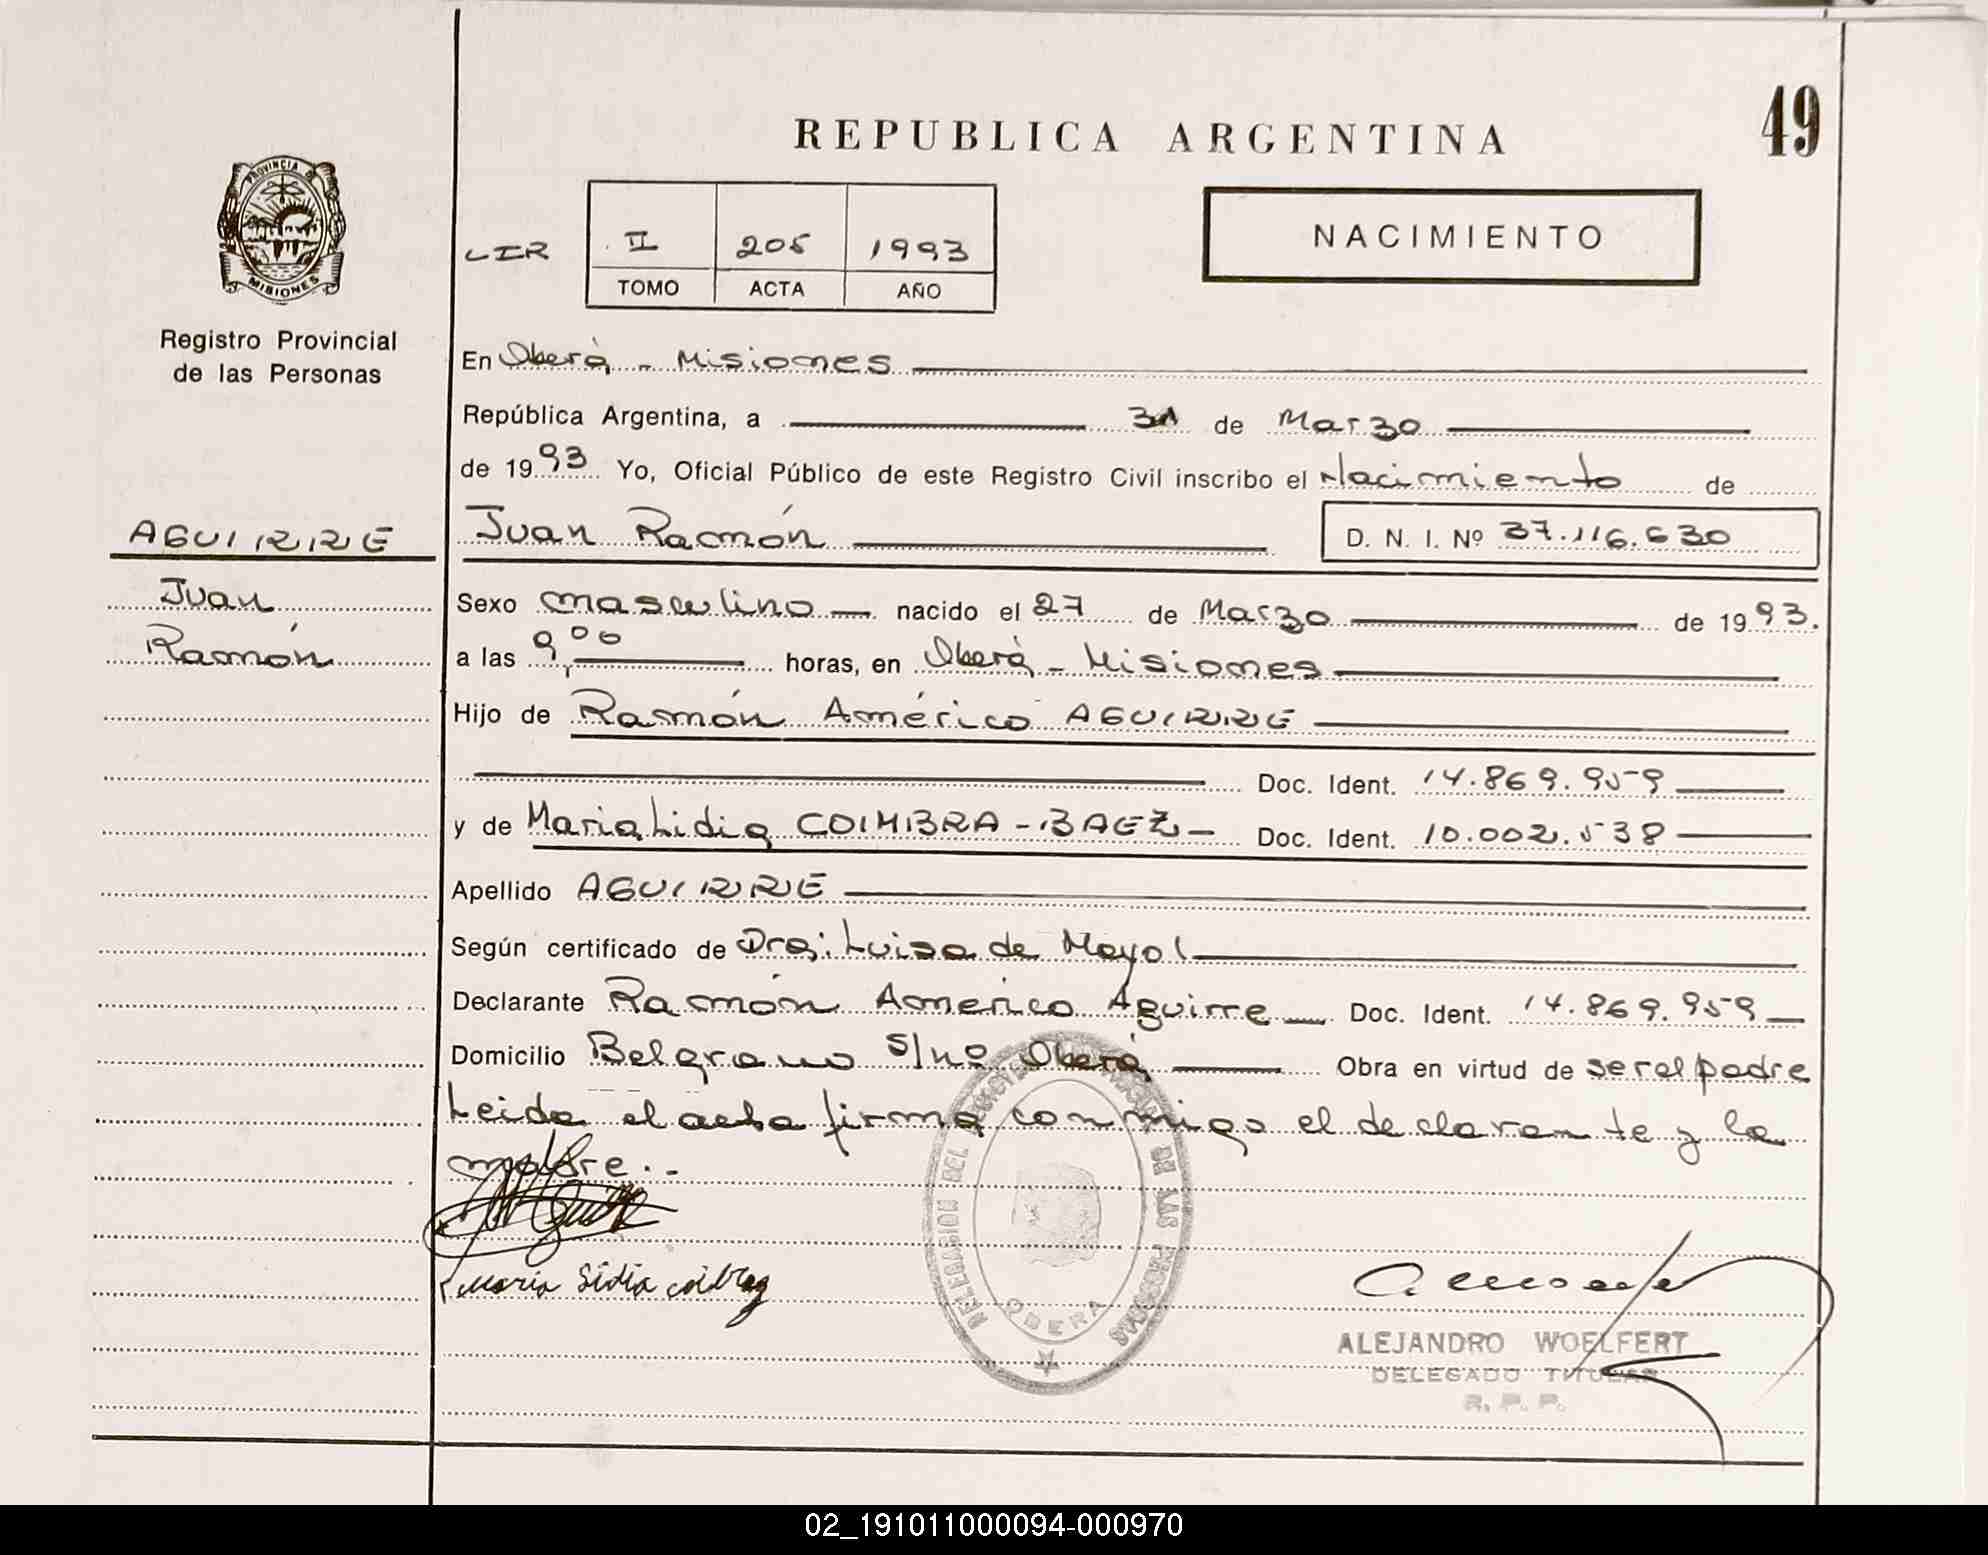 49
REPUBLICA ARGENTINA
PROVINCIA DE
MISIONES
Registro Provincial
de las Personas
LIR
II 205 1993
TOMO ACTA AÑO
NACIMIENTO
En Oberá - Misiones
República Argentina, a 31 de Marzo
de 1993 Yo, Oficial Público de este Registro Civil inscribo el Nacimiento de
AGUIRRE
Juan Ramón D. N. I. Nº 37.116.630
Juan
Ramón
Sexo masculino nacido el 27 de Marzo de 1993.
a las 9,00 horas, en Oberá - Misiones
Hijo de Ramón Américo AGUIRRE
Doc. Ident. 14.869.959
y de Maria Lidia COIMBRA - BAEZ - Doc. Ident. 10.002.538
Apellido AGUIRRE
Según certificado de Dra: Luisa de Mayol
Declarante Ramón Americo Aguirre Doc. Ident. 14.869.959
Domicilio Belgrano S/nº Oberá Obra en virtud de ser el padre
Leida el acta firma conmigo el declarante y la
madre.-
Maria Lidia
DELEGACION DEL REGISTRO PROVINCIAL DE LAS PERSONAS
OBERA
ALEJANDRO WOELFERT
DELEGADO TITULAR
R. P. P.
02_191011000094-000970